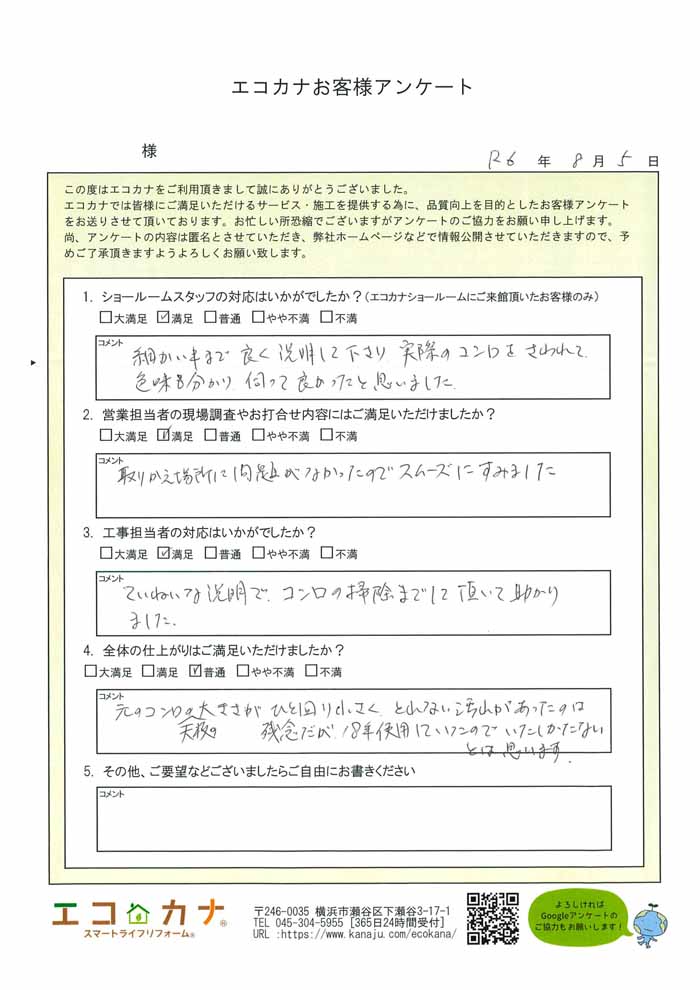 エコカナお客様アンケート
様
R6 年 8 月 5 日
この度はエコカナをご利用頂きまして誠にありがとうございました。
エコカナでは皆様にご満足いただけるサービス・施工を提供する為に、品質向上を目的としたお客様アンケート
をお送りさせて頂いております。お忙しい所恐縮でございますがアンケートのご協力をお願い申し上げます。
尚、アンケートの内容は匿名とさせていただき、弊社ホームページなどで情報公開させていただきますので、予
めご了承頂きますようよろしくお願い致します。
1. ショールームスタッフの対応はいかがでしたか？(エコカナショールームにご来館頂いたお客様のみ)
□大満足 ☑満足 □普通 □やや不満 □不満
コメント
細かい事まで良く説明して下さり 実際のコンロをさわれて
色味も分かり 伺って良かったと思いました
2. 営業担当者の現場調査やお打合せ内容にはご満足いただけましたか？
□大満足 ☑満足 □普通 □やや不満 □不満
コメント
取りかえ場所に問題がなかったのでスムーズにすみました
3. 工事担当者の対応はいかがでしたか？
□大満足 ☑満足 □普通 □やや不満 □不満
コメント
ていねいな説明で、コンロの掃除までして頂いて助かり
ました。
4. 全体の仕上がりはご満足いただけましたか？
□大満足 □満足 ☑普通 □やや不満 □不満
コメント
元のコンロの天板の大きさが ひと回り小さく、とれない汚れがあったのは
残念だが、18年使用していたので いたしかたない
とは思います。
5. その他、ご要望などございましたらご自由にお書きください
コメント
エコカナ®
スマートライフリフォーム®
〒246-0035 横浜市瀬谷区下瀬谷3-17-1
TEL 045-304-5955 [365日24時間受付]
URL :https://www.kanaju.com/ecokana/
よろしければ
Googleアンケートの
ご協力もお願いします！